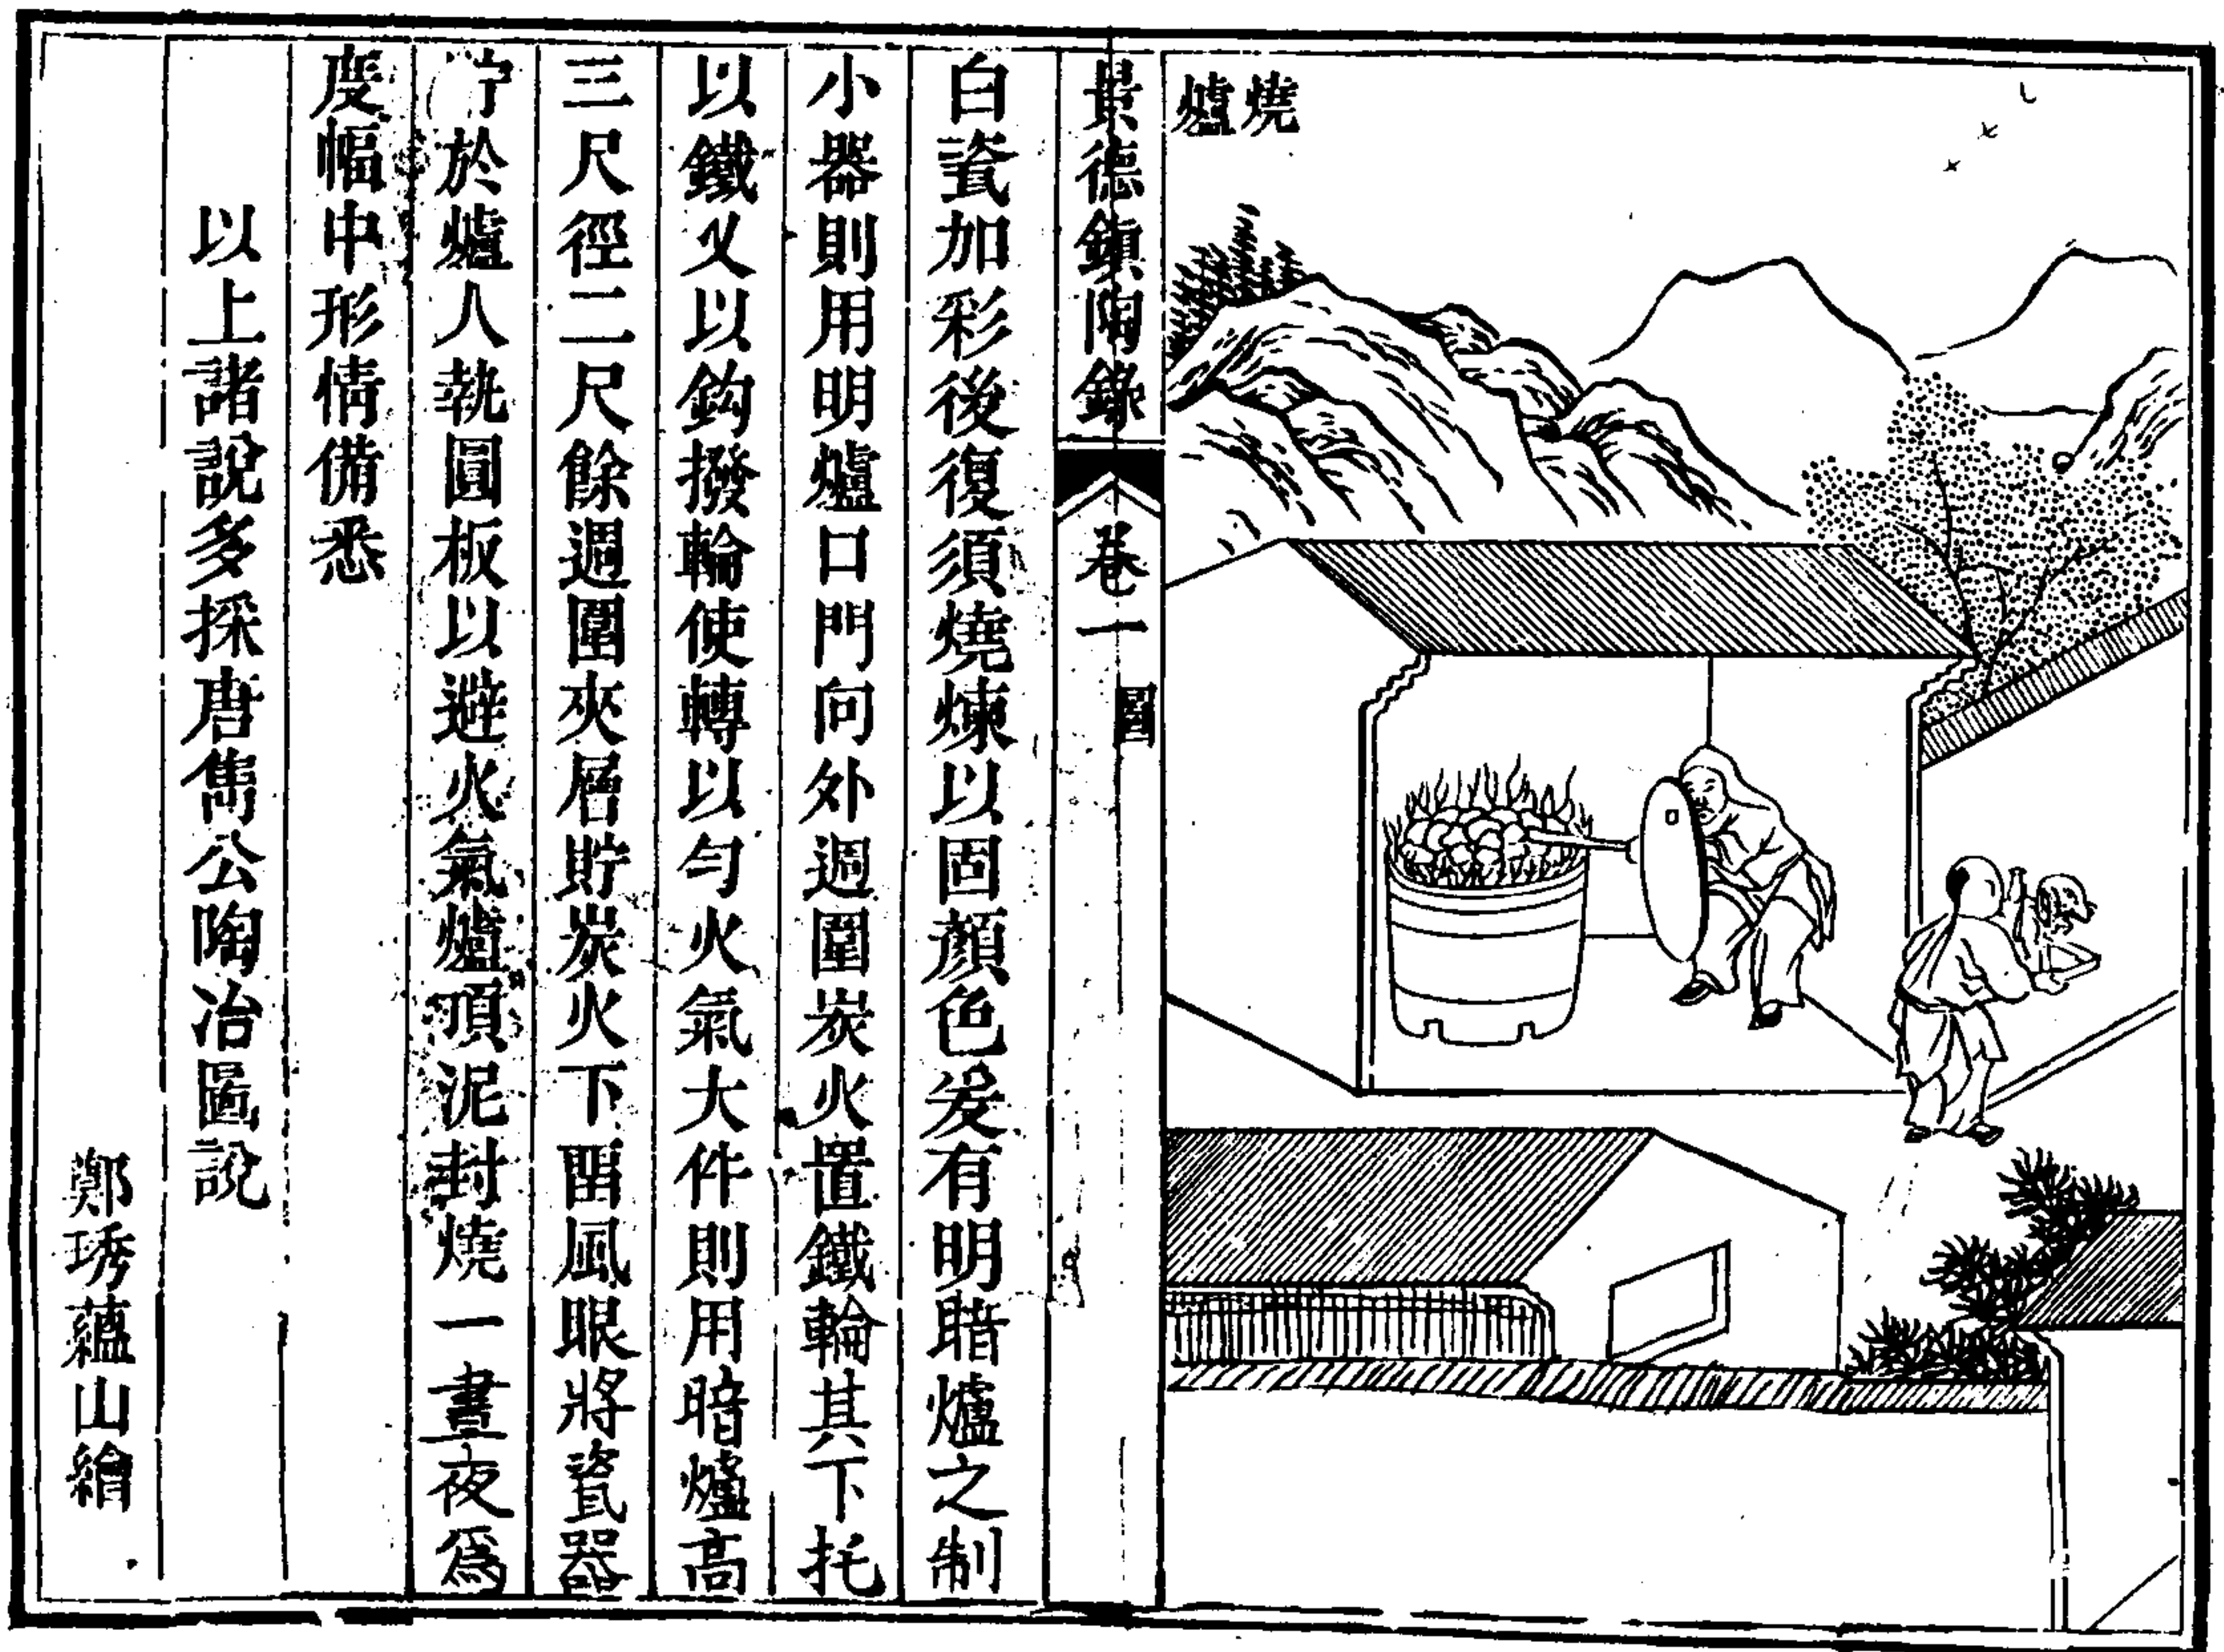 燒爐
景德鎮陶錄 卷一 圖
白瓷加彩後復須燒煉以固顏色爰有明暗爐之制
小器則用明爐口門向外週圍炭火置鐵輪其下托
以鐵叉以鈎撥輪使轉以勻火氣大件則用暗爐高
三尺徑二尺餘週圍夾層貯炭火下畱風眼將瓷器
貯於爐人執圓板以避火氣爐頂泥封燒一晝夜爲
度幅中形情備悉
以上諸說多採唐雋公陶冶圖說
鄭琇蘊山繪